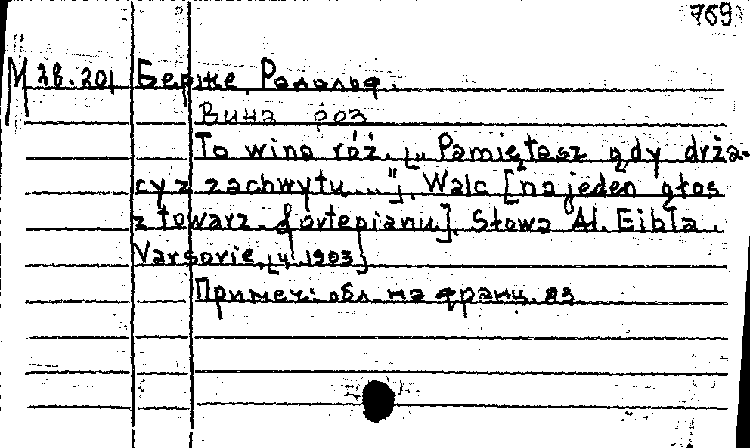 769
М 38.201 Берже, Родольф.
Вина роз
To wina róż. [„Pamiętasz gdy drżą-
cy z zachwytu..."]. Walc [na jeden głos
z towarz. fortepianu]. Słowa Al. Bibla.
Varsovie, [4. 1903]
Примеч: обл. на франц. яз